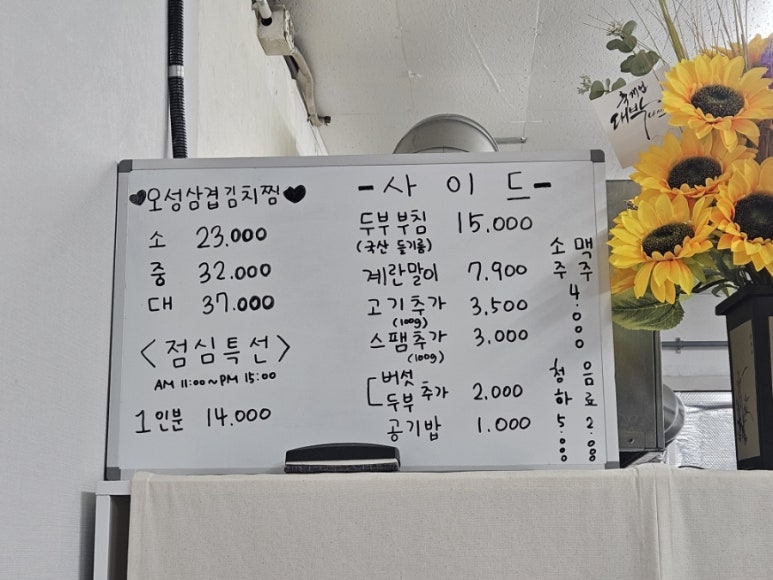 ♥오성삼겹김치찜♥
소 23.000
중 32.000
대 37.000
<점심특선>
AM 11:00~PM 15:00
1인분 14.000
-사이드-
두부부침 15.000
(국산 들기름)
계란말이 7.900
고기추가 3.500
(100g)
스팸추가 3.000
(100g)
버섯
두부 추가 2.000
공기밥 1.000
소주 맥주 4.000
청하 5.000
음료 2.000
대박